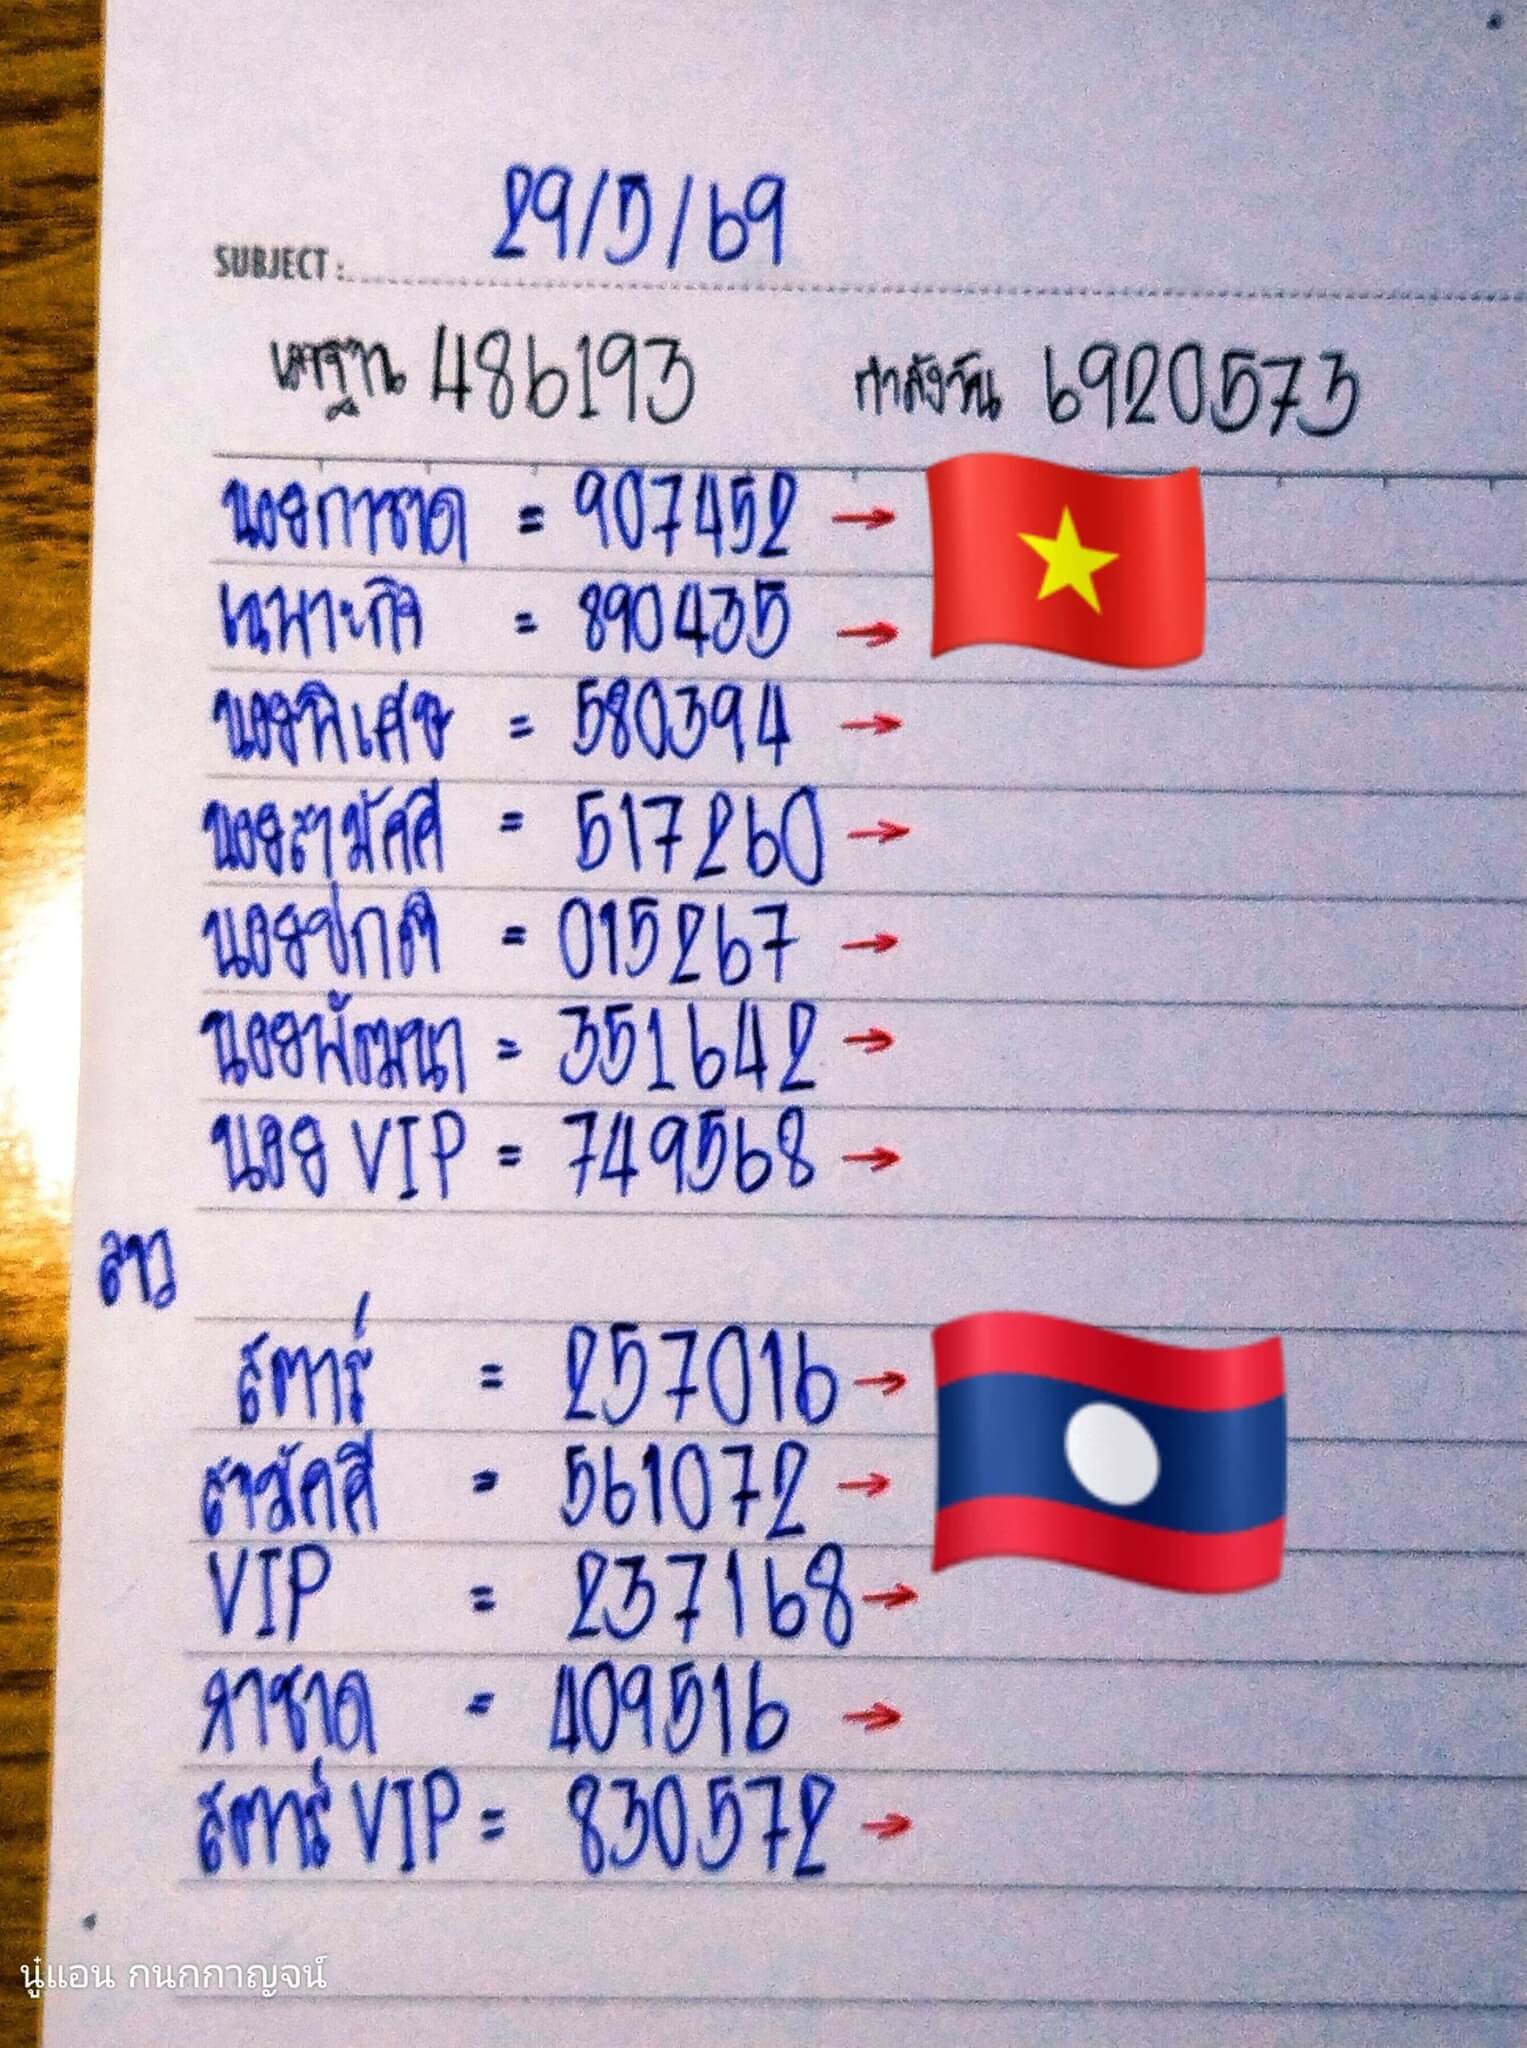 29/5/69
SUBJECT :
เลขฐาน 486193 กำลังวัน 6920573
นอยกาชาด = 907452 →
เฉพาะกิจ = 890435 →
นอยพิเศษ = 580394 →
นอยสามัคคี = 517260 →
นอยปกติ = 015267 →
นอยพัฒนา = 351642 →
นอย VIP = 749568 →
ลาว
สตาร์ = 257016 →
สามัคคี = 561072 →
VIP = 237168 →
กาชาด = 409516 →
สตาร์ VIP = 830572 →
นู๋แอน กนกกาญจน์